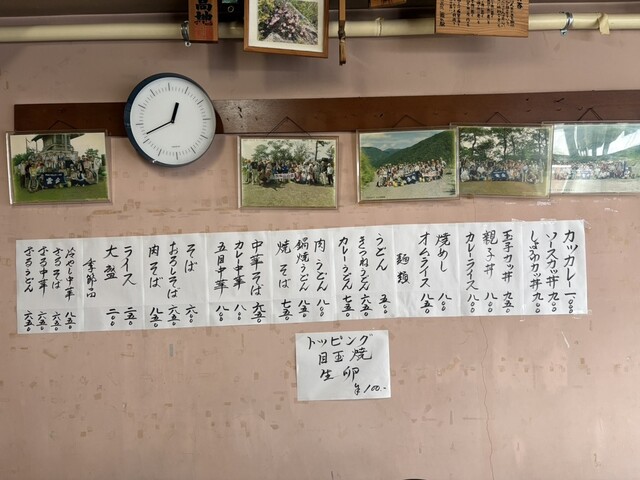 カツカレー 一、〇〇〇
ソースカツ丼 九〇〇
しょうゆカツ丼 九〇〇
玉子カツ丼 九五〇
親子丼 八〇〇
カレーライス 八〇〇
焼めし 八〇〇
オムライス 八五〇
麺類
うどん 五〇〇
きつねうどん 六五〇
カレーうどん 七五〇
肉うどん 八〇〇
鍋焼うどん 八〇〇
焼そば 七五〇
中華そば 六五〇
カレー中華 八〇〇
五目中華 八〇〇
そば 六〇〇
おろしそば 六五〇
肉そば 八五〇
ライス 二五〇
大盛 二〇〇
季節品
冷やし中華 八五〇
ざるそば 六五〇
ざる中華 六五〇
ざるうどん 六五〇
トッピング
目玉焼
生卵
¥100-